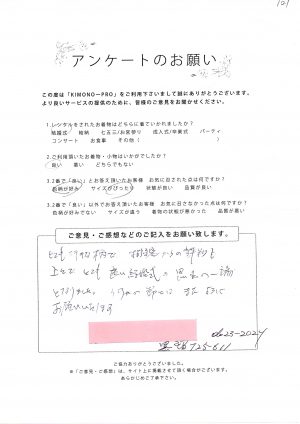 アンケートのお願い
この度は「KIMONO－PRO」をご利用下さいまして誠にありがとうございます。
より良いサービスの提供のために、皆様のご意見をお聞かせください。
1.レンタルをされたお着物はどちらに着ていかれましたか？
結婚式 結納 七五三/お宮参り 成人式/卒業式 パーティ
コンサート お食事 その他（ ）
2.ご利用頂いたお着物・小物はいかがでしたか？
良い 悪い どちらでもない
3.2番で「良い」とお答え頂いたお客様 お気に召された点は何ですか？
色柄が好み サイズがぴったり 状態が良い 品質が良い
3.2番で「良い」以外でお答え頂いたお客様 お気に召さなかった点は何ですか？
色柄が好みでない サイズが違う 着物の状態が悪かった 品質が悪い
ご意見・ご感想などのご記入をお願い致します。
とても
良い結婚式の思い出の
となりました。
お願いいたします
ご協力ありがとうございました。
※「ご意見・ご感想」は、サイト上に掲載させて頂く場合がございます。
あらかじめご了承下さい。